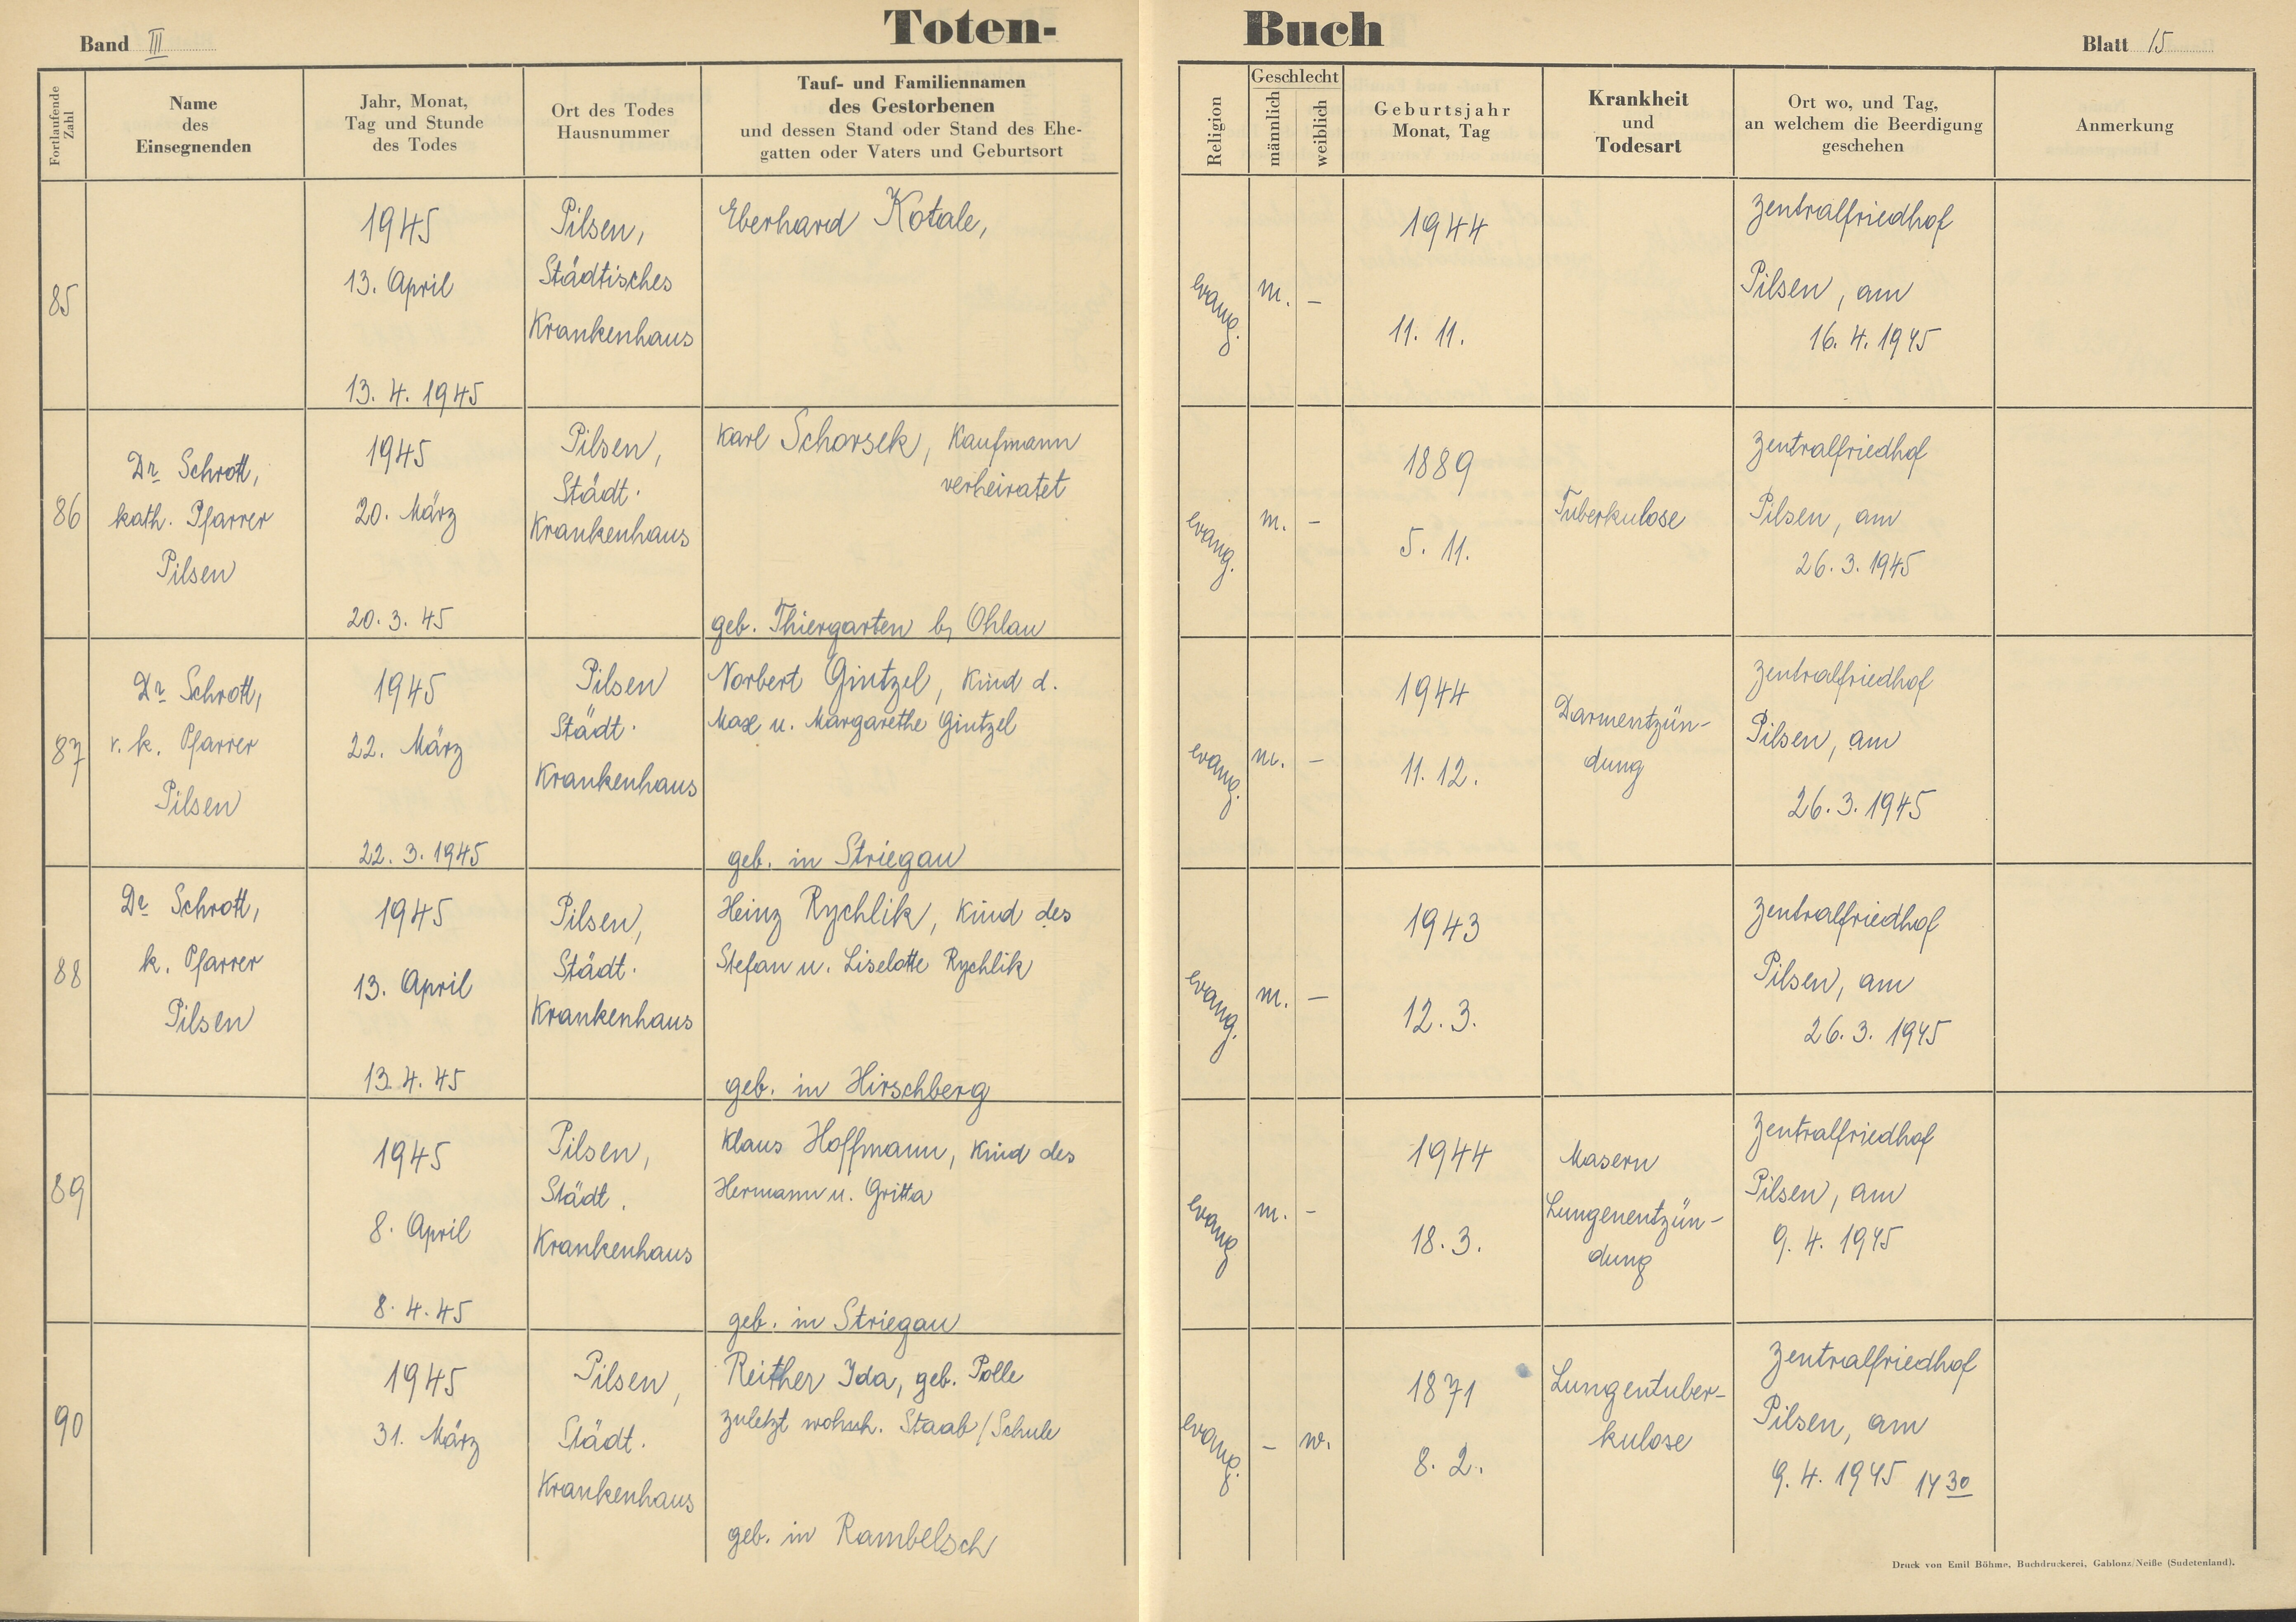 Band III
Toten-
Buch
Blatt 15
Fortlaufende Zahl
Name
des
Einsegnenden
Jahr, Monat,
Tag und Stunde
des Todes
Ort des Todes
Hausnummer
Tauf- und Familiennamen
des Gestorbenen
und dessen Stand oder Stand des Ehe-
gatten oder Vaters und Geburtsort
Religion
Geschlecht
männlich
weiblich
Geburtsjahr
Monat, Tag
Krankheit
und
Todesart
Ort wo, und Tag,
an welchem die Beerdigung
geschehen
Anmerkung
85
1945
13. April
13. 4. 1945
Pilsen,
Städtisches
Krankenhaus
Eberhard Kotale,
evang.
m.
–
1944
11. 11.
Zentralfriedhof
Pilsen, am
16. 4. 1945
86
Dr Schrott,
kath. Pfarrer
Pilsen
1945
20. März
20. 3. 45
Pilsen,
Städt.
Krankenhaus
Karl Schorsek, Kaufmann
verheiratet
geb. Thiergarten b, Ohlau
evang.
m.
–
1889
5. 11.
Tuberkulose
Zentralfriedhof
Pilsen, am
26. 3. 1945
87
Dr Schrott,
r. k. Pfarrer
Pilsen
1945
22. März
22. 3. 1945
Pilsen
Städt.
Krankenhaus
Norbert Gintzel, Kind d.
Max u. Margarethe Gintzel
geb. in Striegau
evang.
m.
–
1944
11. 12.
Darmentzün-
dung
Zentralfriedhof
Pilsen, am
26. 3. 1945
88
Dr Schrott,
k. Pfarrer
Pilsen
1945
13. April
13. 4. 45
Pilsen,
Städt.
Krankenhaus
Heinz Rychlik, Kind des
Stefan u. Liselotte Rychlik
geb. in Hirschberg
evang.
m.
–
1943
12. 3.
Zentralfriedhof
Pilsen, am
26. 3. 1945
89
1945
8. April
8. 4. 45
Pilsen,
Städt.
Krankenhaus
Klaus Hoffmann, Kind des
Hermann u. Gritta
geb. in Striegau
evang
m.
-
1944
18. 3.
Masern
Lungenentzün-
dung
Zentralfriedhof
Pilsen, am
9. 4. 1945
90
1945
31. März
Pilsen,
Städt.
Krankenhaus
Reither Ida, geb. Polle
zuletzt wohnh. Staab/Schule
geb. in Rambelsch
evang.
–
w.
1871
8. 2.
Lungentuber-
kulose
Zentralfriedhof
Pilsen, am
9. 4. 1945 14 30
Druck von Emil Böhme, Buchdruckerei, Gablonz/Neiße (Sudetenland).